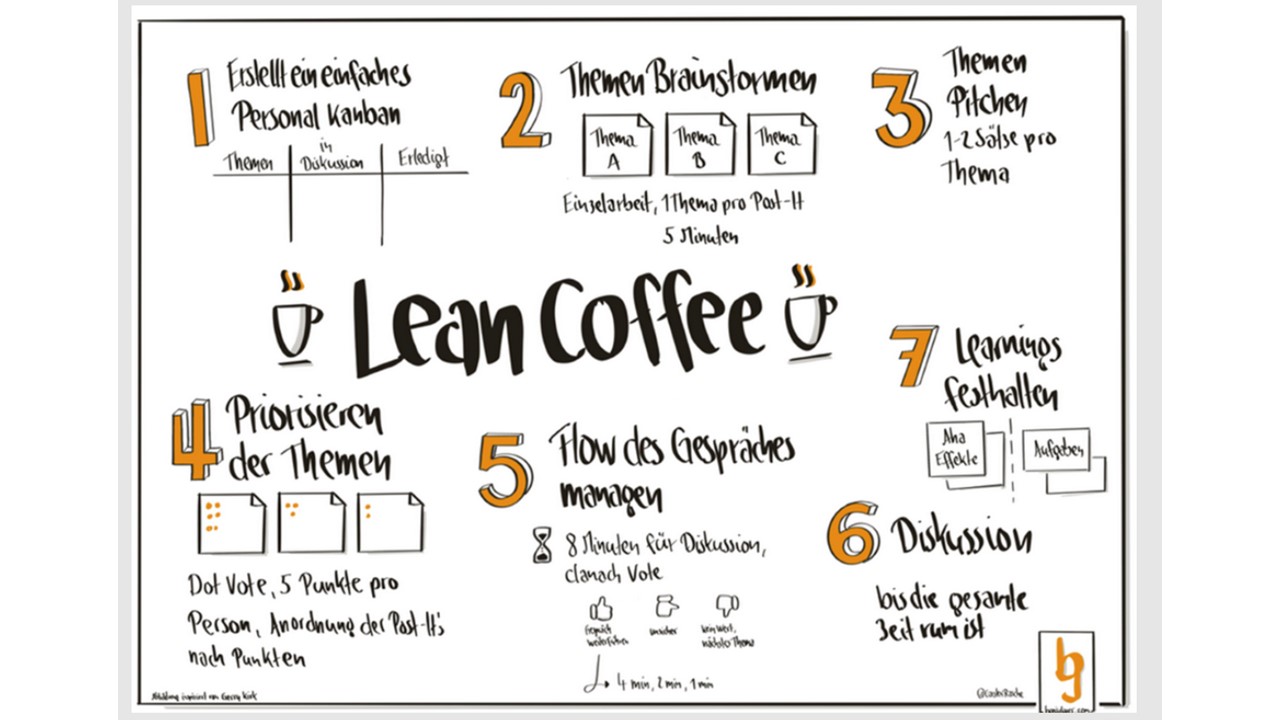 1 Erstellt ein einfaches
Personal Kanban
Themen
in
Diskussion
Erledigt
2 Themen Brainstormen
Thema
A
Thema
B
Thema
C
Einzelarbeit, 1 Thema pro Post-It
5 Minuten
3 Themen
Pitchen
1-2 Sätze pro
Thema
Lean Coffee
4 Priorisieren
der Themen
Dot Vote, 5 Punkte pro
Person, Anordnung der Post-It's
nach Punkten
5 Flow des Gespräches
managen
8 Minuten für Diskussion,
danach Vote
Gespräch
weiterführen
unsicher
kein Wert,
nächstes Thema
4 min, 2 min, 1 min
6 Diskussion
bis die gesamte
Zeit rum ist
7 Learnings
festhalten
Aha
Effekte
Aufgaben
Abbildung inspiriert von Gerry Kirk
bg